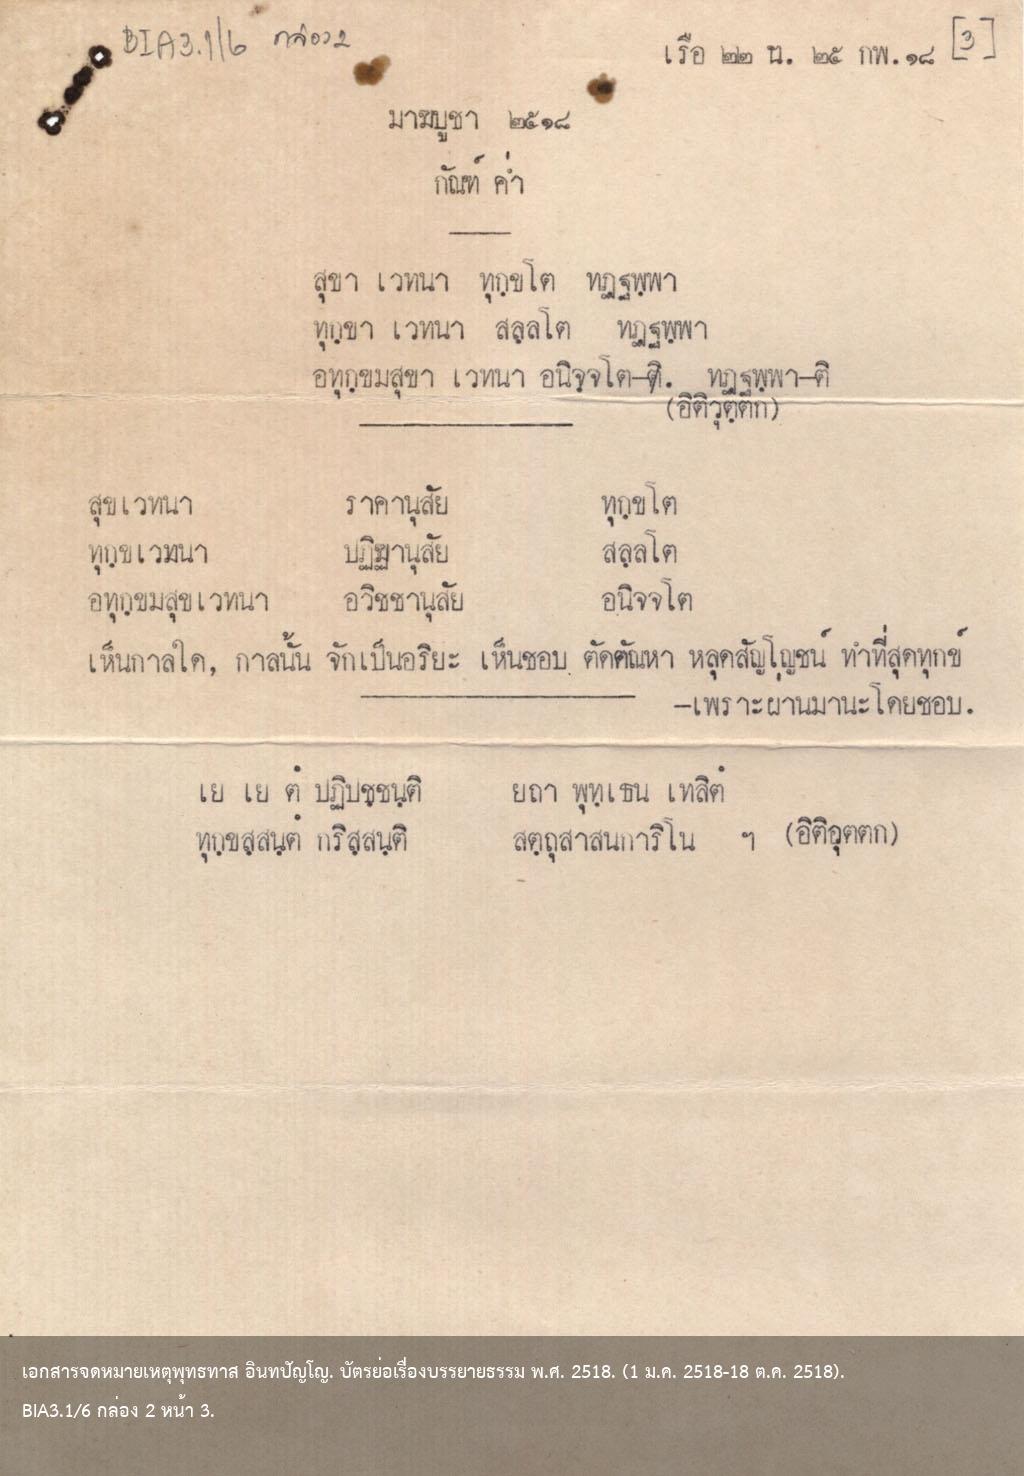 BIA3.1/๖ กล่อง 2
เรือ ๒๒ น. ๒๕ กพ.๑๘ [3]
มาฆบูชา ๒๕๑๘
กัณฑ์ ค่ำ
สุขา เวทนา ทุกฺขโต ทฏฺฐพฺพา
ทุกฺขา เวทนา สลฺลโต ทฏฺฐพฺพา
อทุกฺขมสุขา เวทนา อนิจฺจโต-ติ. ทฏฺฐพฺพา-ติ
(อิติวุตฺตก)
สุขเวทนา ราคานุสัย ทุกฺขโต
ทุกฺขเวทนา ปฏิฆานุสัย สลฺลโต
อทุกฺขมสุขเวทนา อวิชชานุสัย อนิจจโต
เห็นกาลใด, กาลนั้น จักเป็นอริยะ เห็นชอบ ตัดตัณหา หลุดสัญโญชน์ ทำที่สุดทุกข์
-เพราะผ่านมานะโดยชอบ.
เย เย ตํ ปฏิปชฺชนฺติ ยถา พุทฺเธน เทสิตํ
ทุกฺขสฺสนฺตํ กริสฺสนฺติ สตฺถุสาสนการิโน ฯ (อิติอุตตก)
เอกสารจดหมายเหตุพุทธทาส อินทปัญโญ. บัตรย่อเรื่องบรรยายธรรม พ.ศ. 2518. (1 ม.ค. 2518-18 ต.ค. 2518).
BIA3.1/6 กล่อง 2 หน้า 3.